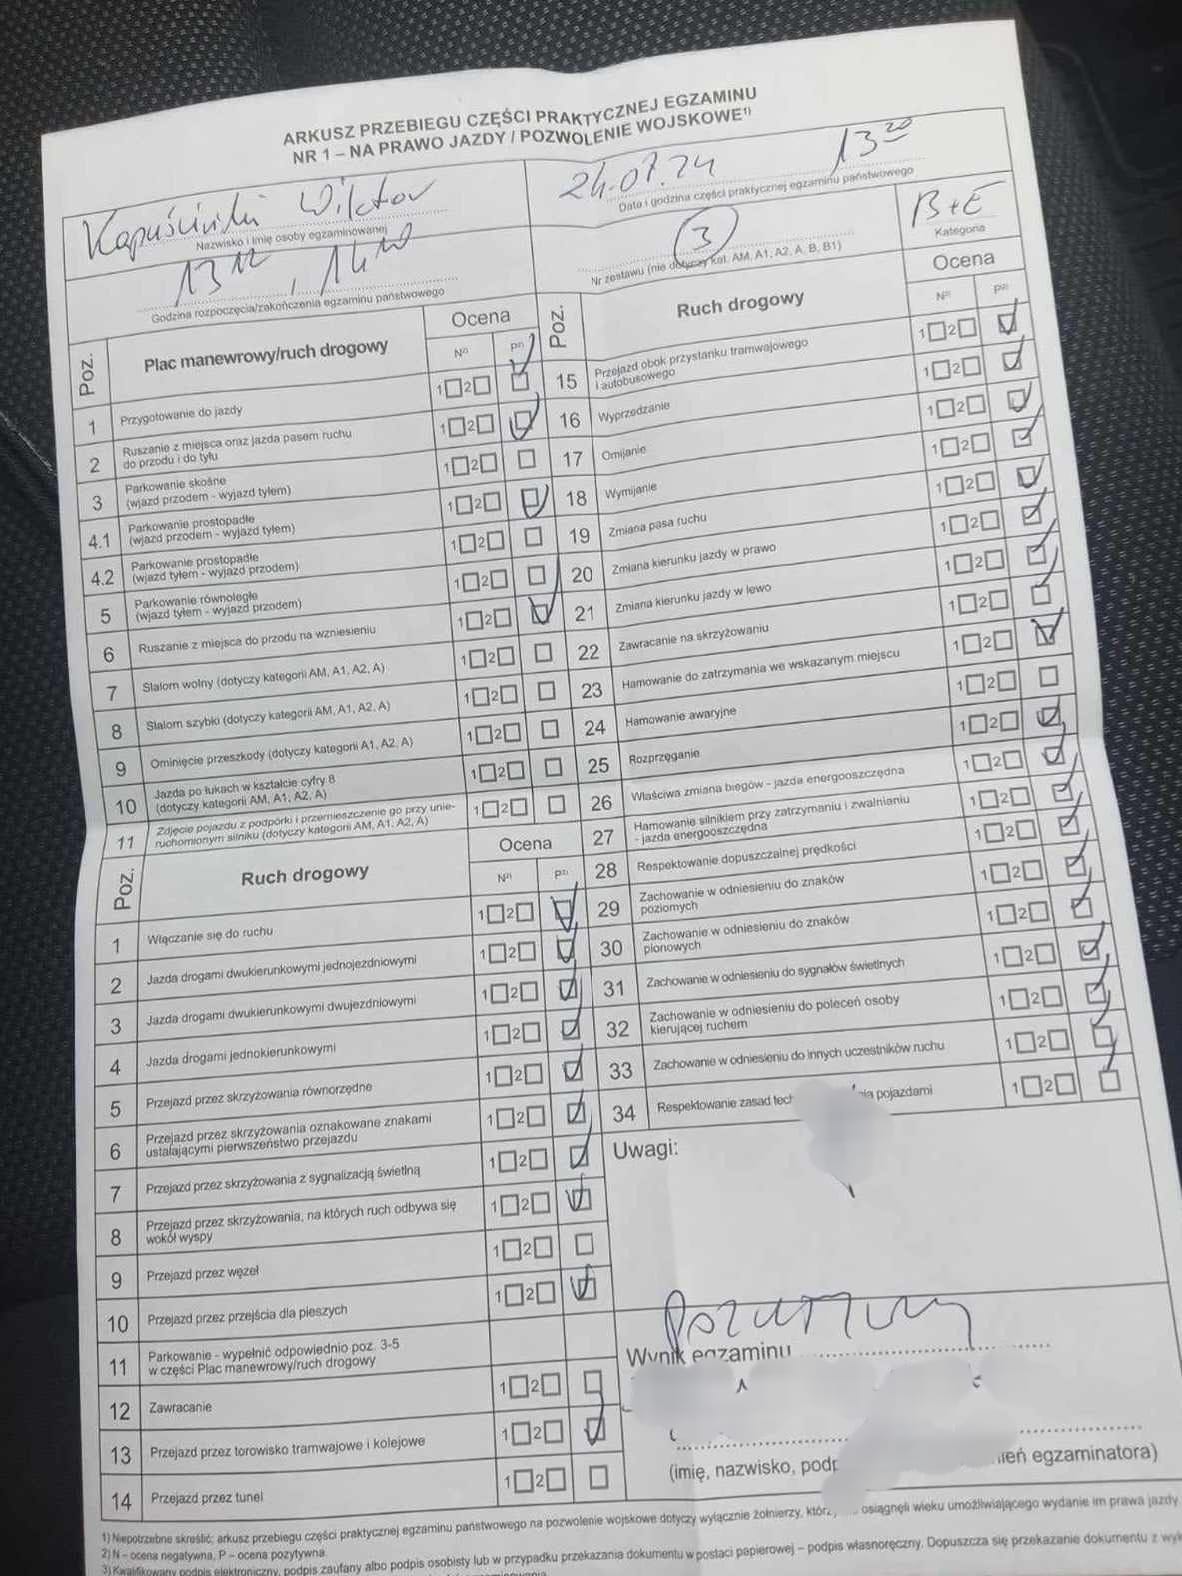 ARKUSZ PRZEBIEGU CZĘŚCI PRAKTYCZNEJ EGZAMINU
NR 1 – NA PRAWO JAZDY / POZWOLENIE WOJSKOWE¹⁾
Kapuściński Wiktor
Nazwisko i imię osoby egzaminowanej
24.07.24 13²⁰
Data i godzina części praktycznej egzaminu państwowego
Godzina rozpoczęcia/zakończenia egzaminu państwowego
3
Nr zestawu (nie dotyczy kat. AM, A1, A2, A, B, B1)
B+E
Kategoria
Poz.
Plac manewrowy/ruch drogowy
Ocena
N²⁾ P²⁾
1 Przygotowanie do jazdy 1 2
2 Ruszanie z miejsca oraz jazda pasem ruchu
do przodu i do tyłu 1 2
3 Parkowanie skośne
(wjazd przodem - wyjazd tyłem) 1 2
4.1 Parkowanie prostopadłe
(wjazd przodem - wyjazd tyłem) 1 2
4.2 Parkowanie prostopadłe
(wjazd tyłem - wyjazd przodem) 1 2
5 Parkowanie równoległe
(wjazd tyłem - wyjazd przodem) 1 2
6 Ruszanie z miejsca do przodu na wzniesieniu 1 2
7 Slalom wolny (dotyczy kategorii AM, A1, A2, A) 1 2
8 Slalom szybki (dotyczy kategorii AM, A1, A2, A) 1 2
9 Ominięcie przeszkody (dotyczy kategorii A1, A2, A) 1 2
10 Jazda po łukach w kształcie cyfry 8
(dotyczy kategorii AM, A1, A2, A) 1 2
11 Zdjęcie pojazdu z podpórki i przemieszczenie go przy unie-
ruchomionym silniku (dotyczy kategorii AM, A1, A2, A) 1 2
Poz.
Ruch drogowy
Ocena
N²⁾ P²⁾
1 Włączanie się do ruchu 1 2
2 Jazda drogami dwukierunkowymi jednojezdniowymi 1 2
3 Jazda drogami dwukierunkowymi dwujezdniowymi 1 2
4 Jazda drogami jednokierunkowymi 1 2
5 Przejazd przez skrzyżowania równorzędne 1 2
6 Przejazd przez skrzyżowania oznakowane znakami
ustalającymi pierwszeństwo przejazdu 1 2
7 Przejazd przez skrzyżowania z sygnalizacją świetlną 1 2
8 Przejazd przez skrzyżowania, na których ruch odbywa się
wokół wyspy 1 2
9 Przejazd przez węzeł 1 2
10 Przejazd przez przejścia dla pieszych 1 2
11 Parkowanie - wypełnić odpowiednio poz. 3-5
w części Plac manewrowy/ruch drogowy
12 Zawracanie 1 2
13 Przejazd przez torowisko tramwajowe i kolejowe 1 2
14 Przejazd przez tunel 1 2
Poz.
Ruch drogowy
Ocena
N²⁾ P²⁾
15 Przejazd obok przystanku tramwajowego
i autobusowego 1 2
16 Wyprzedzanie 1 2
17 Omijanie 1 2
18 Wymijanie 1 2
19 Zmiana pasa ruchu 1 2
20 Zmiana kierunku jazdy w prawo 1 2
21 Zmiana kierunku jazdy w lewo 1 2
22 Zawracanie na skrzyżowaniu 1 2
23 Hamowanie do zatrzymania we wskazanym miejscu 1 2
24 Hamowanie awaryjne 1 2
25 Rozprzęganie 1 2
26 Właściwa zmiana biegów - jazda energooszczędna 1 2
27 Hamowanie silnikiem przy zatrzymaniu i zwalnianiu
- jazda energooszczędna 1 2
28 Respektowanie dopuszczalnej prędkości 1 2
29 Zachowanie w odniesieniu do znaków
poziomych 1 2
30 Zachowanie w odniesieniu do znaków
pionowych 1 2
31 Zachowanie w odniesieniu do sygnałów świetlnych 1 2
32 Zachowanie w odniesieniu do poleceń osoby
kierującej ruchem 1 2
33 Zachowanie w odniesieniu do innych uczestników ruchu 1 2
34 Respektowanie zasad tech nia pojazdami 1 2
Uwagi:
Pozytywny
Wynik egzaminu
(imię, nazwisko, podp ień egzaminatora)
1) Niepotrzebne skreślić; arkusz przebiegu części praktycznej egzaminu państwowego na pozwolenie wojskowe dotyczy wyłącznie żołnierzy, któr osiągnęli wieku umożliwiającego wydanie im prawa jazdy
2) N – ocena negatywna, P – ocena pozytywna.
3) Kwalifikowany podpis elektroniczny, podpis zaufany albo podpis osobisty lub w przypadku przekazania dokumentu w postaci papierowej – podpis własnoręczny. Dopuszcza się przekazanie dokumentu z